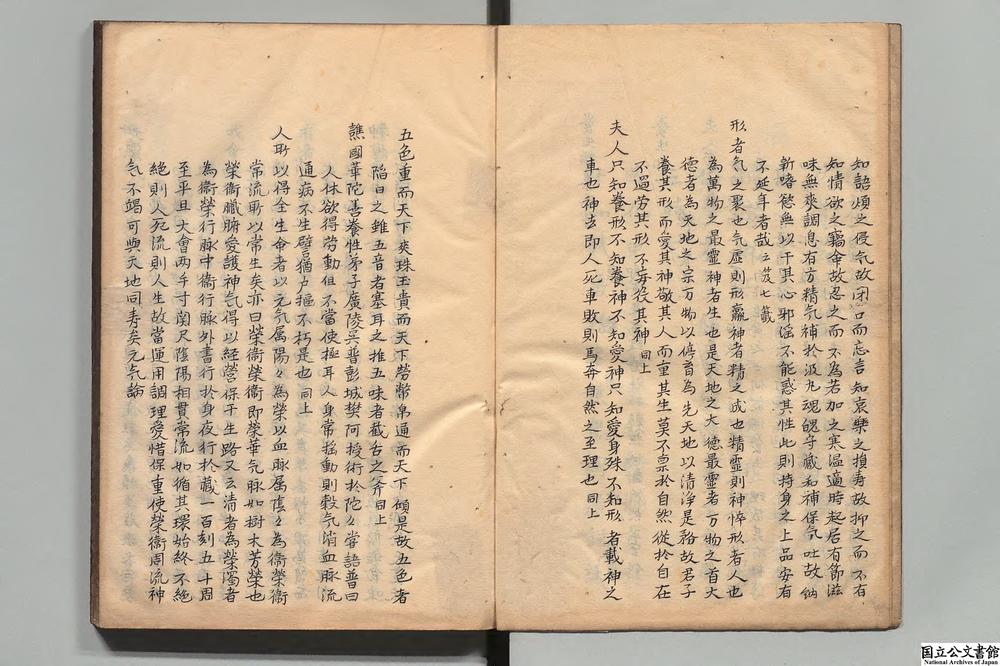 知語煩之侵气故閉口而忘言知哀樂之損壽故抑之而不有
知情欲之竊命故忍之而不為若加之寒温適時起居有節滋
味無爽調息有方精气補於泥丸魂魄守藏和補保气吐故納
新嗜慾無以干其心邪淫不能惑其性此則持身之上品安有
不延年者哉云笈七籤
形者气之聚也气虚則形羸神者精之成也精虚則神悴形者人也
為萬物之最靈神者生也是天地之大德最靈者万物之首大
德者為天地之宗万物以停育為先天地以清浄是務故君子
養其形而愛其神敬其人而重其生莫不禀於自然從於自在
不過勞其形不妄役其神同上
夫人只知養形不知養神不知愛神只知愛身殊不知形者載神之
車也神去即人死車敗則馬奔自然之至理也同上
五色重而天下爽珠玉貴而天下勞幣帛通而天下傾是故五色者
陷目之錐五音者塞耳之推五味者截舌之斧同上
譙國華陀善養性弟子廣陵吴普彭城樊阿授術於陀々嘗語普曰
人体欲得勞動但不當使極耳人身常揺動則穀气消血脉流
通病不生譬猶户樞不朽是也同上
人所以得全生命者以元气属陽々為榮以血脉属陰々為衛榮衛
常流所以常生矣亦曰榮衛榮衛即榮華气脉如樹木芳榮也
榮衛臓腑愛護神气得以経營保于生路又云清者為榮濁者
為衛榮行脉中衛行脉外晝行於身夜行於藏一百刻五十周
至平旦大會两手寸関尺陰陽相貫常流如循其環始終不絶
絶則人死流則人生故當運用調理愛惜保重使榮衛周流神
气不竭可與天地同寿矣元气論
国立公文書館
National Archives of Japan